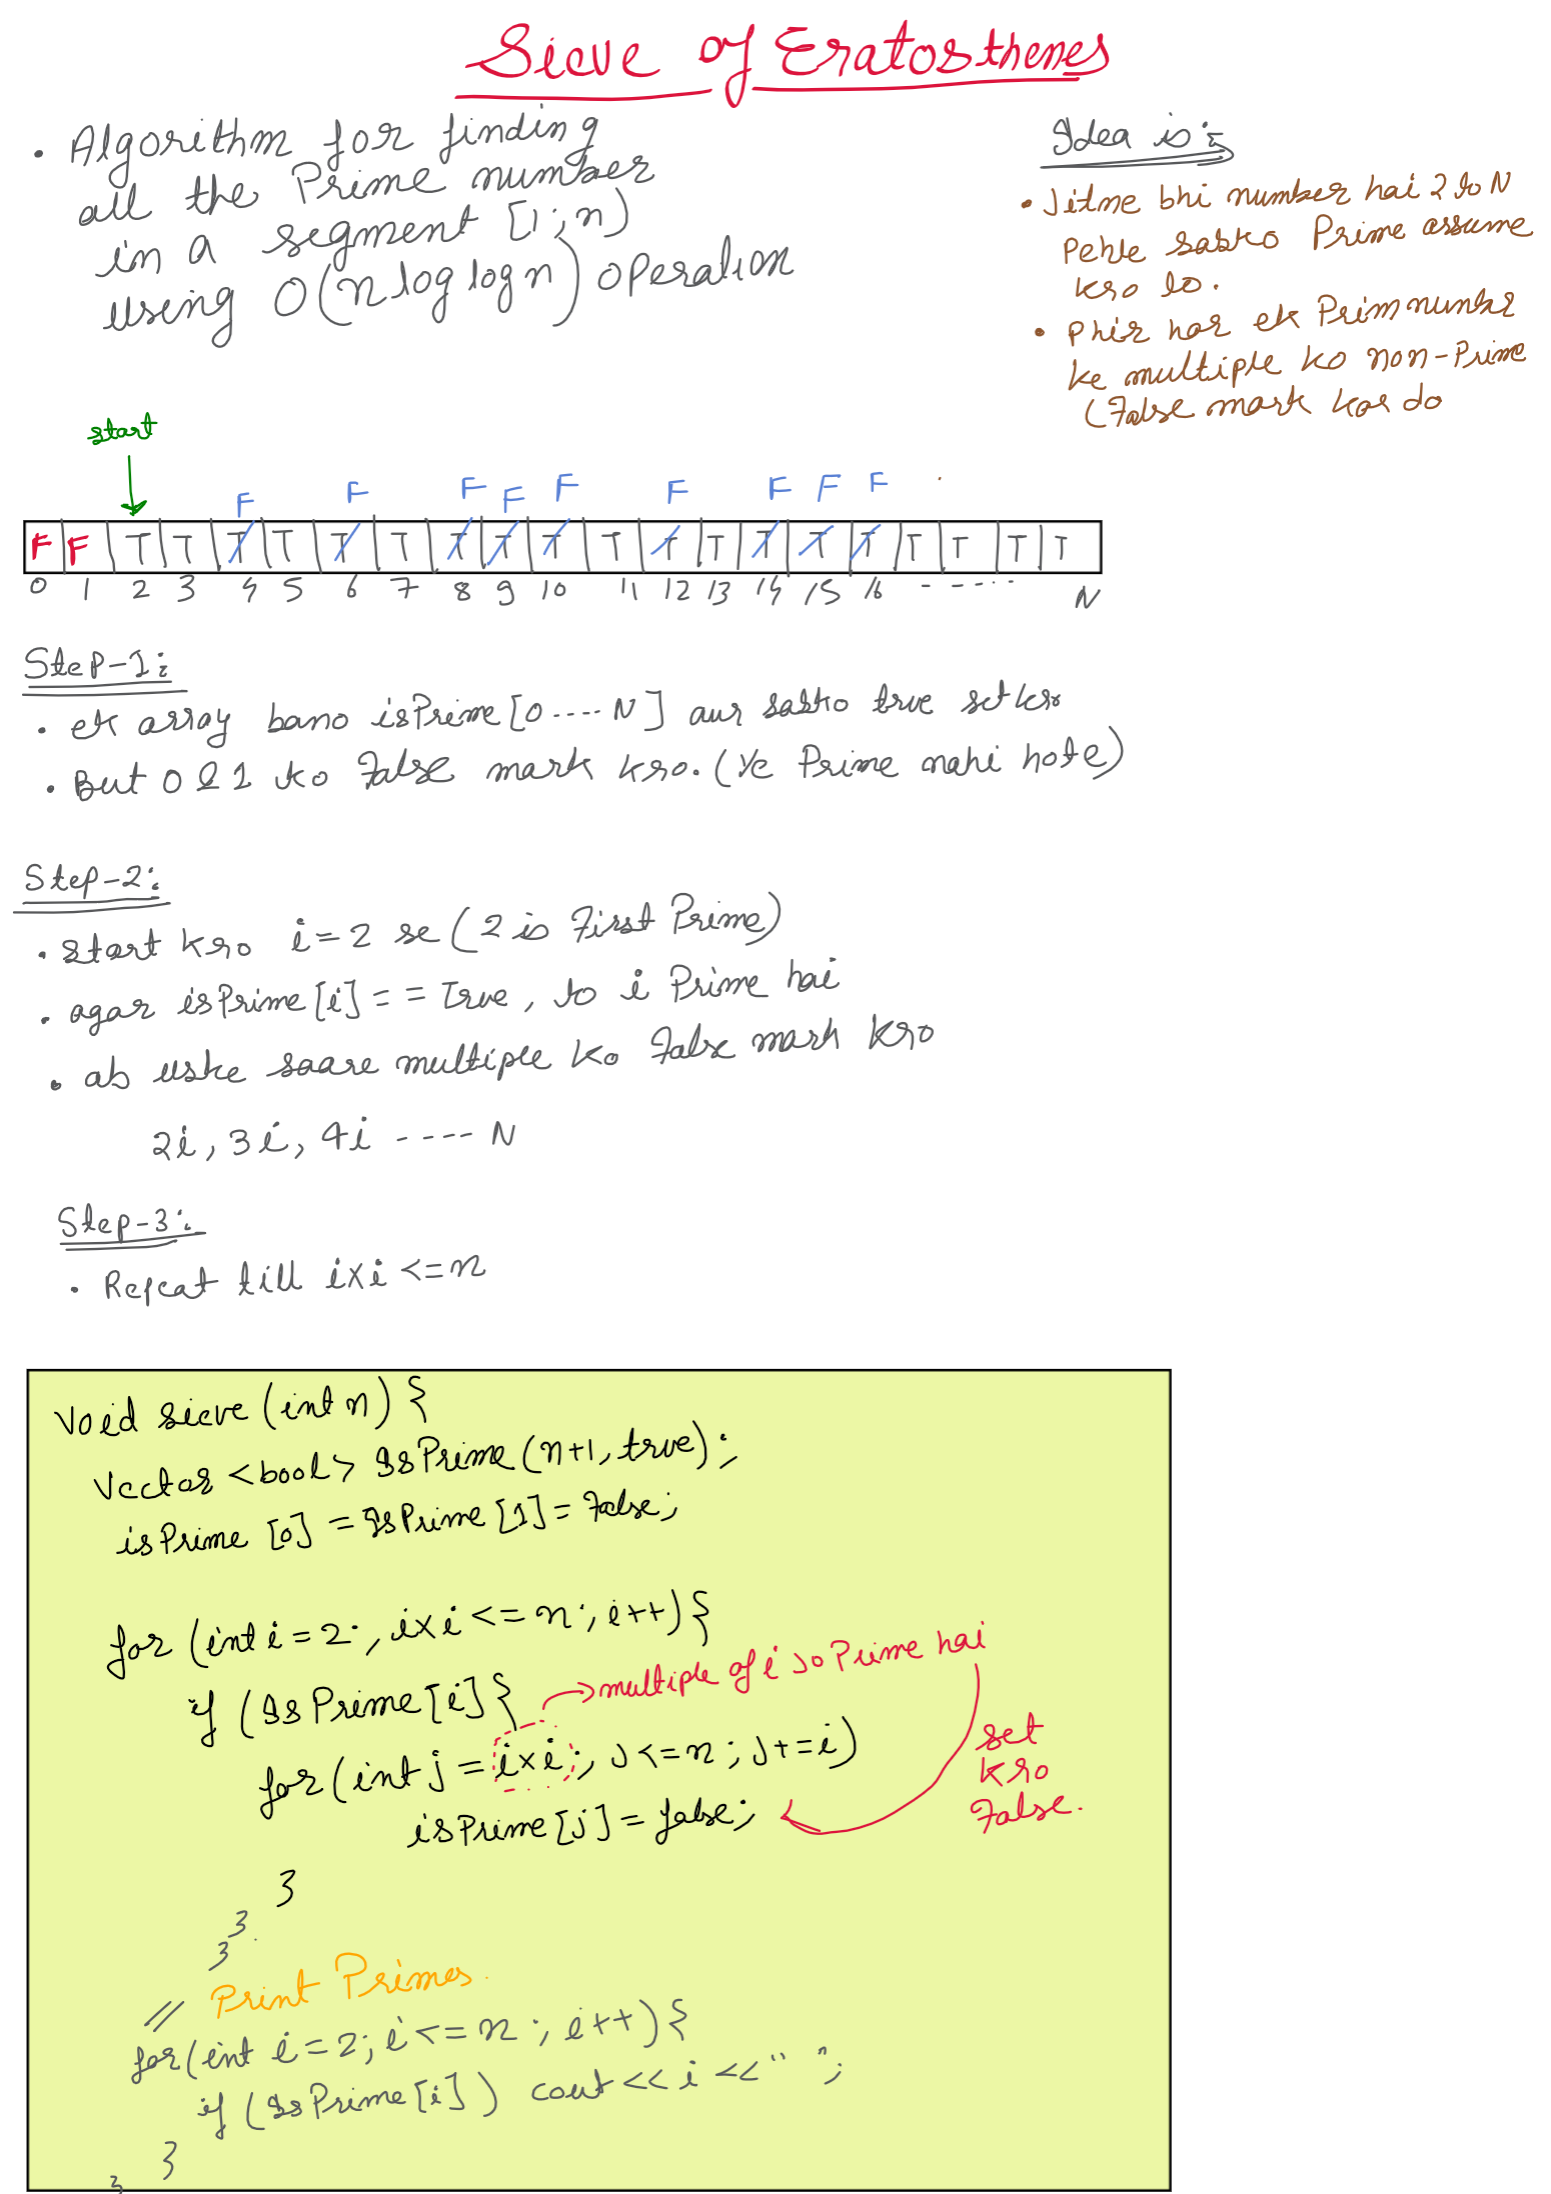 Sieve of Eratosthenes
• Algorithm for finding
all the Prime number
in a segment [1;n)
using O(n log log n) operation
Idea is:
• Jitne bhi number hai 2 to N
Pehle sabko Prime assume
kro lo.
• Phir har ek Prim number
ke multiple ko non-Prime
(False mark kar do
start
F F F F F F F F F
F F T T T T T T T T T T T T T T T T T T T
0 1 2 3 4 5 6 7 8 9 10 11 12 13 14 15 16 - - - - - - N
Step-1:
• ek array bano isPrime[0 ---- N] aur sabko true set kro
• But 0 & 1 ko False mark kro. (Ye Prime nahi hote)
Step-2:
• start kro i=2 se (2 is First Prime)
• agar isPrime[i] == True, to i Prime hai
• ab uske saare multiple ko False mark kro
2i, 3i, 4i ---- N
Step-3:
• Repeat till i×i <=n
Void sieve (int n) {
Vector <bool> IsPrime(n+1, true);
isPrime [0] = IsPrime [1] = False;
for (int i=2; i×i <= n; i++) {
if (IsPrime[i] {
→ multiple of i jo Prime hai
for (int j = i×i; j<=n; j+=i)
set
kro
False.
isPrime[j] = false;
}
}
}
// Print Primes.
for(int i=2; i<=n; i++) {
if (IsPrime[i]) cout << i << " ";
}
}